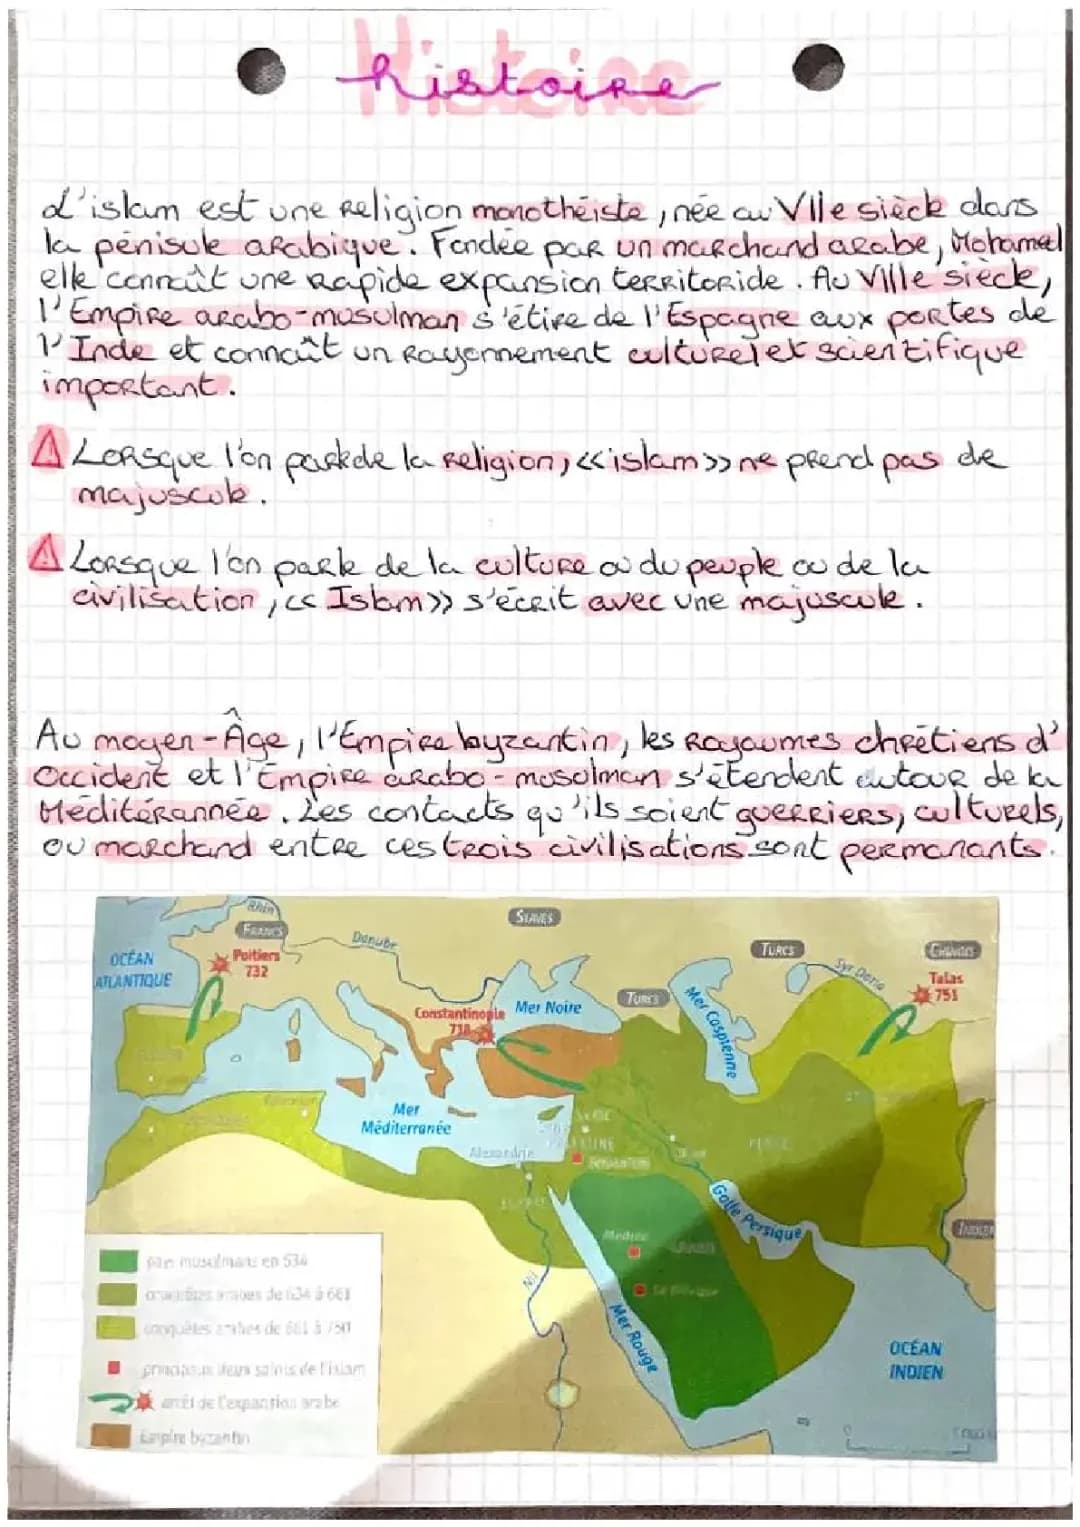 histoire
L'islam est une religion monothéiste, née au VIIe siècle dans
la pénisule arabique. Fondée par un marchand arabe, Mohamed
elle connaît une rapide expansion territoriale. Au VIIIe siècle,
l'Empire arabo-musulman s'étire de l'Espagne aux portes de
l'Inde et connaît un rayonnement culturel et scientifique
important.
⚠ Lorsque l'on parle de la religion, <<islam>> ne prend pas de
majuscule.
⚠ Lorsque l'on parle de la culture ou du peuple ou de la
civilisation, << Islam>> s'écrit avec une majuscule.
Au moyen-Âge, l'Empire byzantin, les Royaumes chrétiens d'
Occident et l'Empire arabo-musulman s'étendent autour de la
Méditérannée. Les contacts qu'ils soient guerriers, culturels,
ou marchand entre ces trois civilisations sont permanants.
Rhin
FRANCS
SLAVES
Danube
OCÉAN
ATLANTIQUE
Poitiers
732
TURCS
Syr Daria
CHINOIS
Talas
751
Constantinople
718
Mer Noire
TURCS
Mer Caspienne
Mer
Méditerranée
Alexandrie
SYRIE
PALESTINE
Jérusalem
PERSE
ÉGYPTE
Golfe Persique
Médine
La Mecque
Nil
Mer Rouge
OCÉAN
INDIEN
pays musulmans en 634
conquêtes arabes de 634 à 661
conquêtes arabes de 661 à 750
principaux lieux saints de l'islam
arrêt de l'expansion arabe
Empire byzantin
0